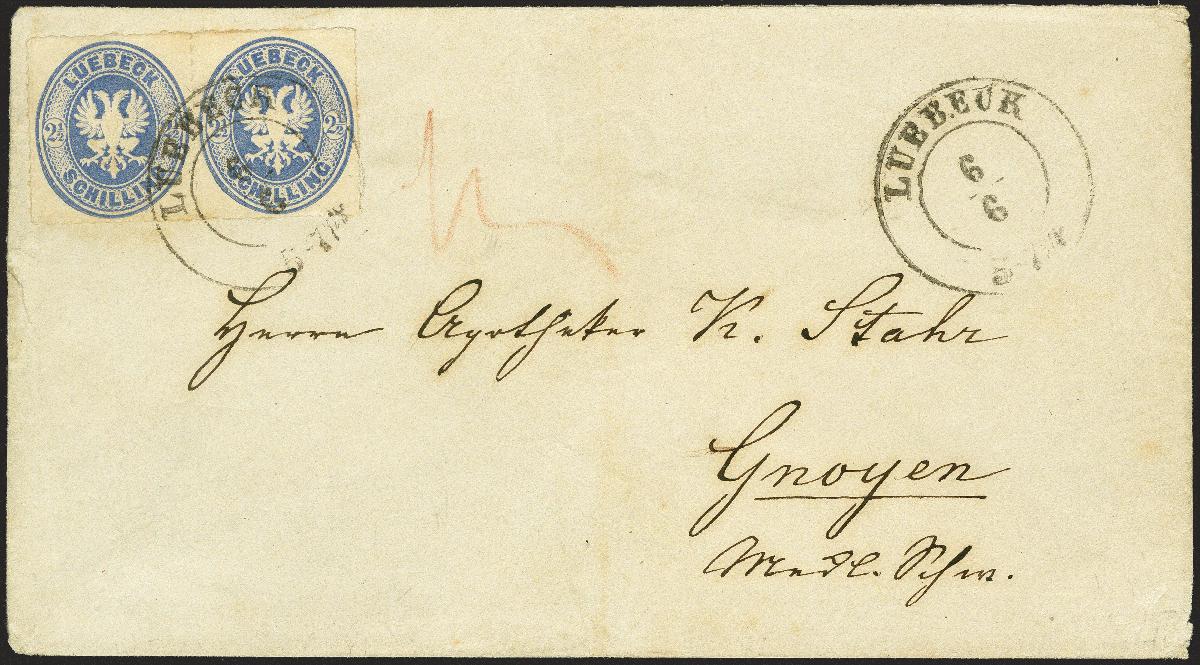 LUEBECK
2½ 2½
SCHILLIN
LUEBECK
2½ 2½
SCHILLING
LUEBECK
5-7
LUEBECK
6
6
5-7
Herrn Apotheker K. Stahr
Gnoyen
Meckl. Schw.